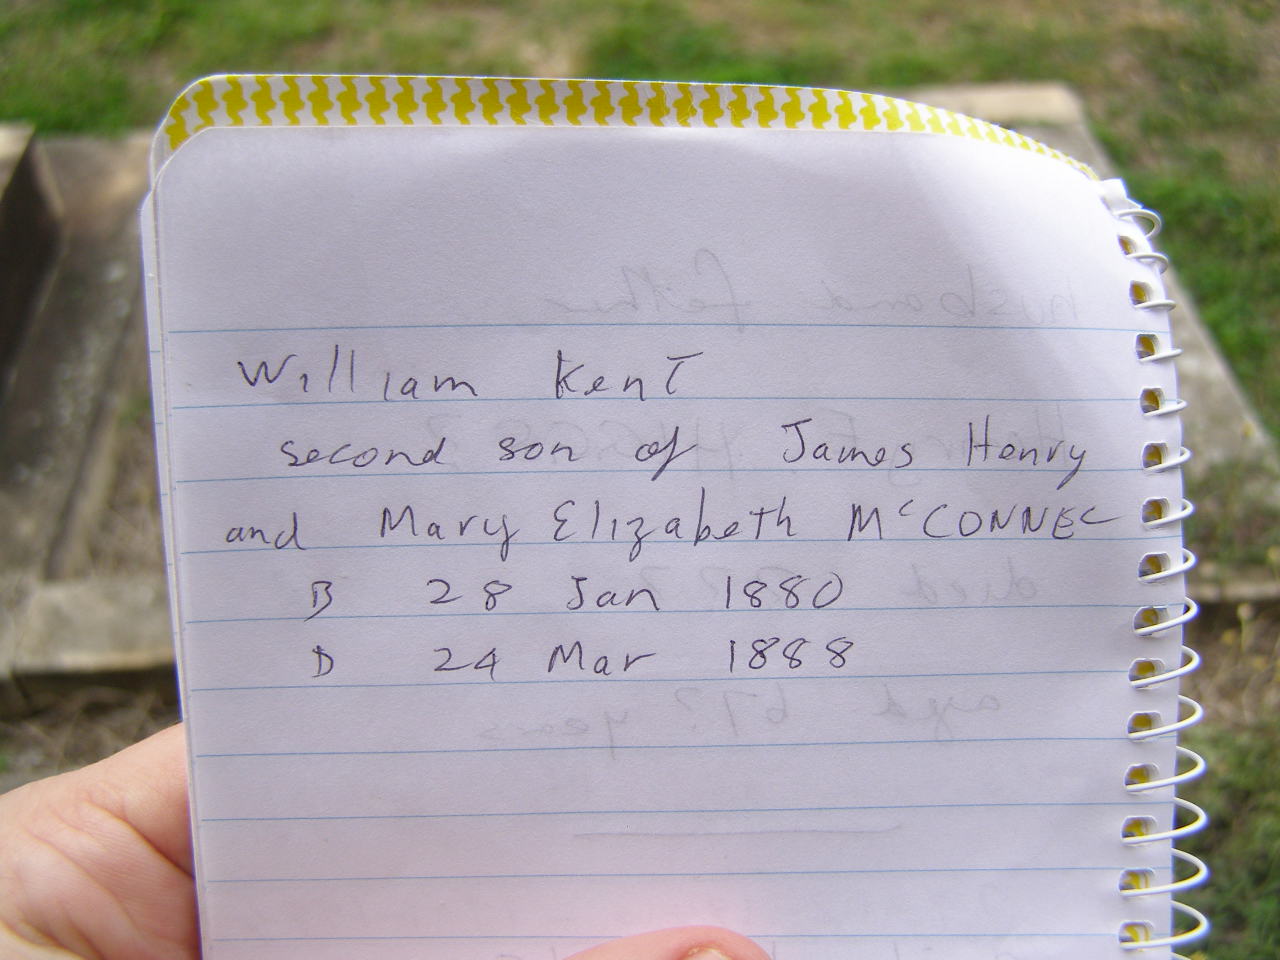 William Kent
second son of James Henry
and Mary Elizabeth McCONNEL
B 28 Jan 1880
D 24 Mar 1888